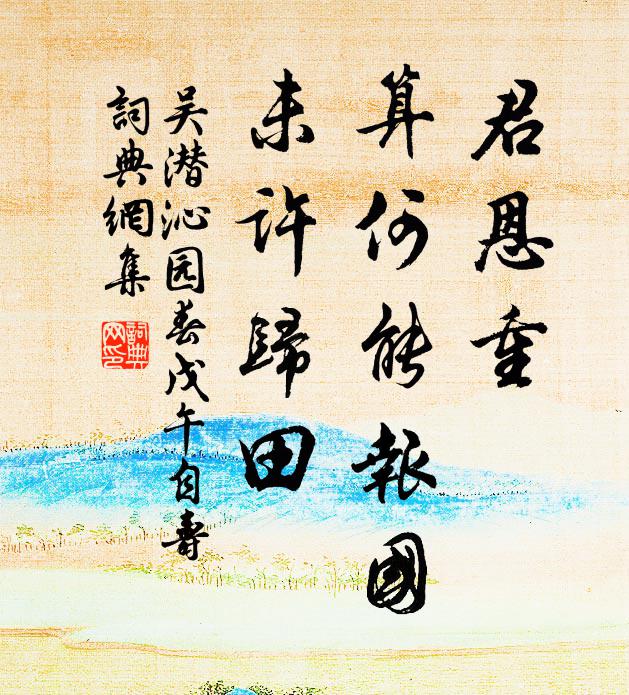 君恩重
算何能報國
未許歸田
吴潜沁园春戊午自壽
詞典網集
詞典
网印